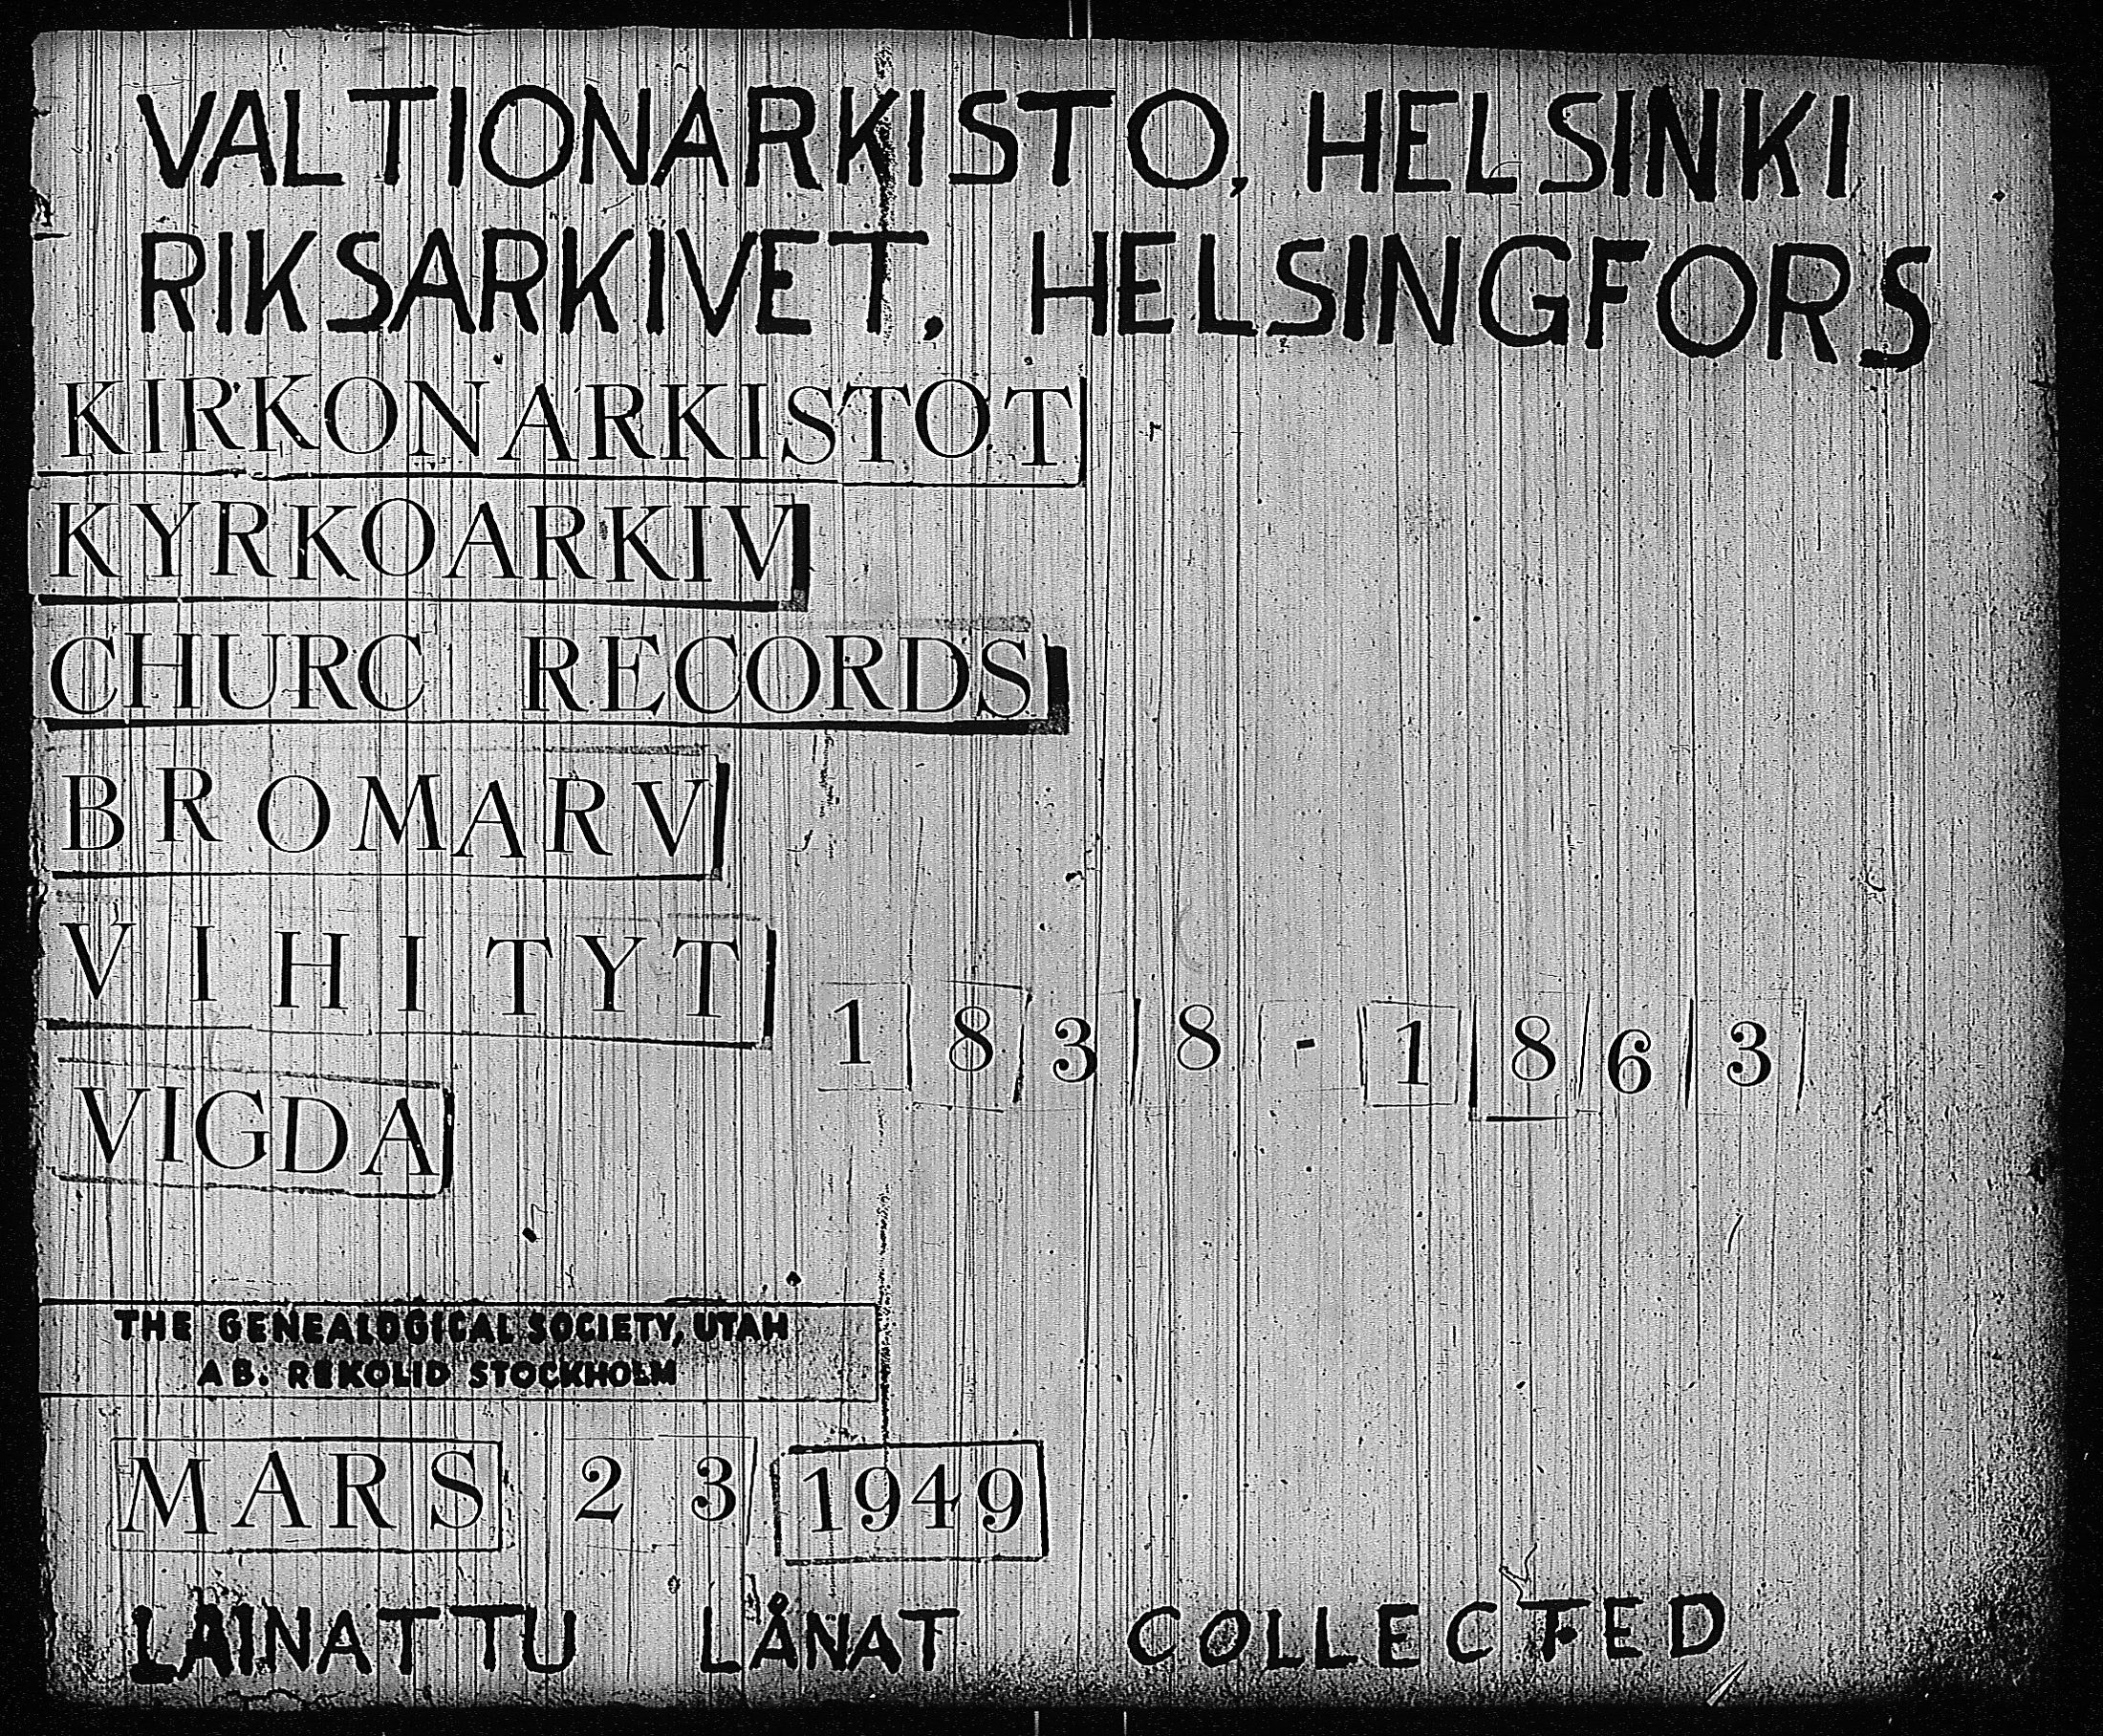 VALTIONARKISTO, HELSINKI
RIKSARKIVET, HELSINGFORS
KIRKONARKISTOT
KYRKOARKIV
CHURC RECORDS
BROMARV
VIHITYT 1838-1863
VIGDA
THE GENEALOGICAL SOCIETY, UTAH
AB. REKOLID STOCKHOLM
MARS 23 1949
LAINATTU LÅNAT COLLECTED